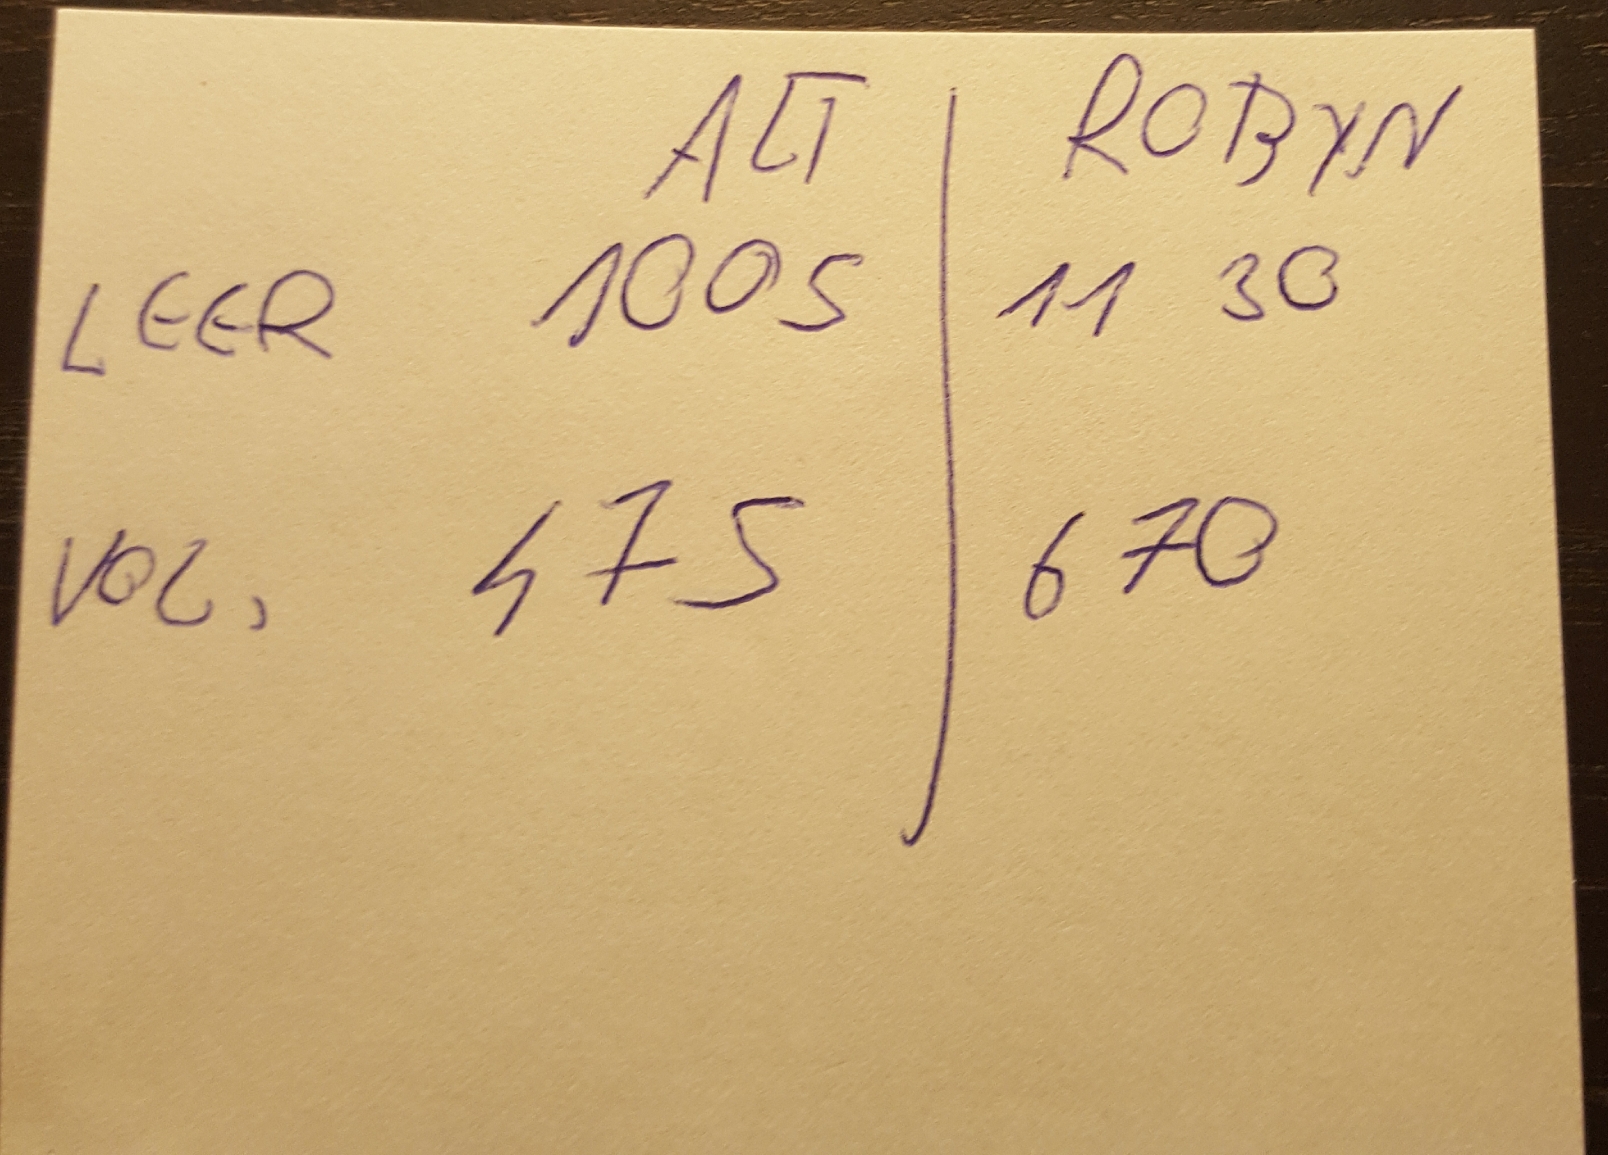 ALT ROBYN
LEER 1005 11 30
VOL. 475 670